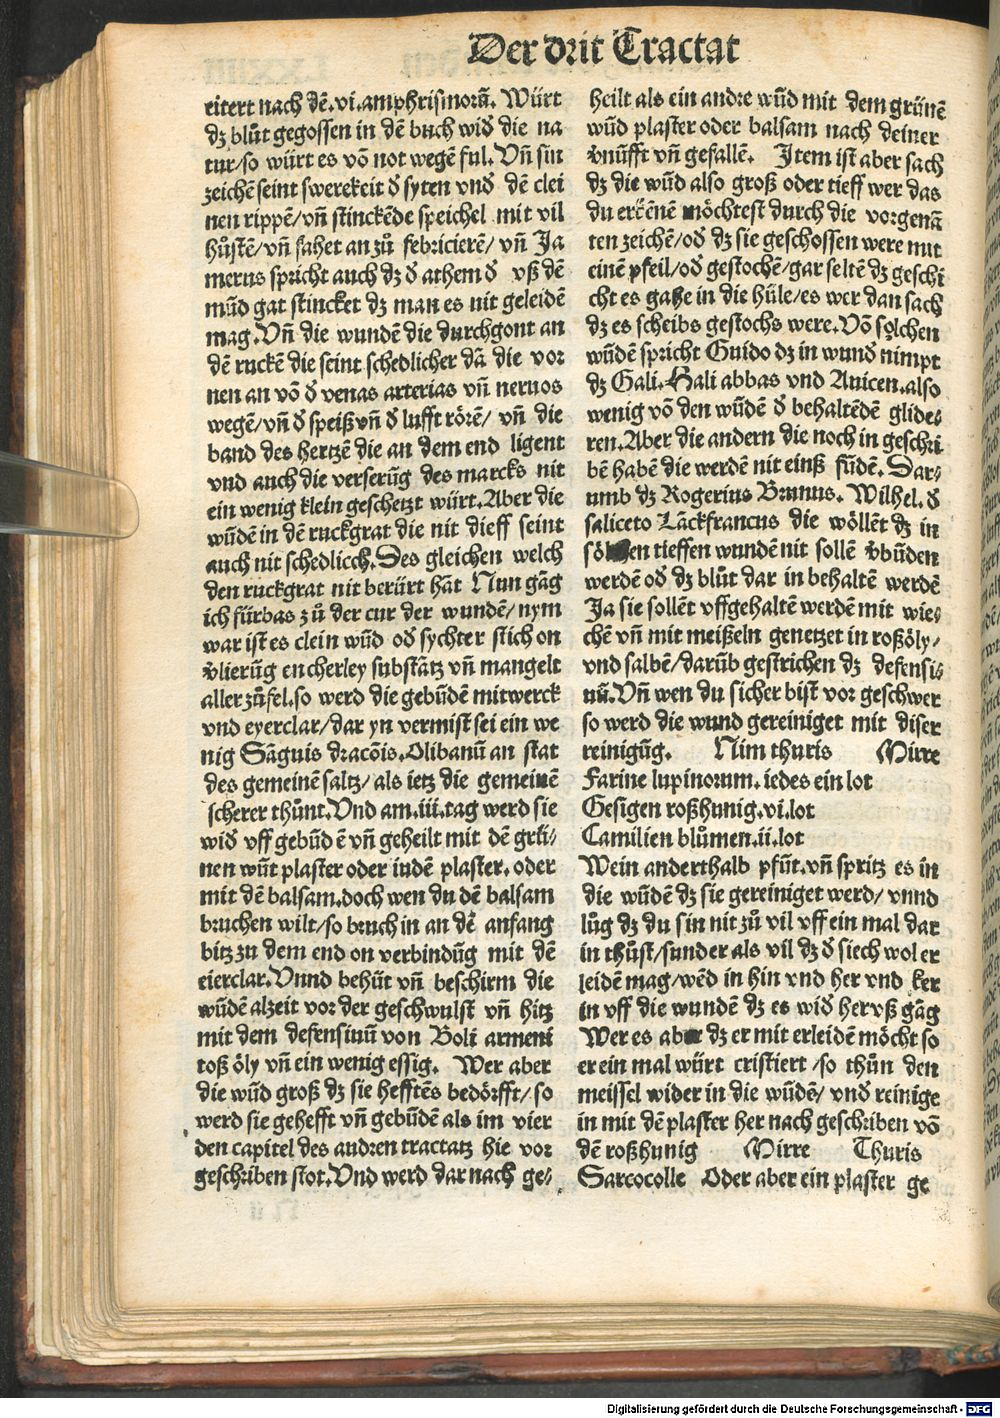 Der drit Tractat
eitert nach dē.vi.amphrismorā. Würt
dz blůt gegossen in dē buch wid̕ die na
tur/so würt es vō not wegē ful.Vn̄ sin
zeichē seint swerekeit d̕ syten vnd̕ dē clei
nen rippē/vn̄ stinckēde speichel mit vil
hůstē/vn̄ fahet an zů febricierē/vn̄ Ja
merus spricht auch dz d̕ athem d̕ vß dē
mūd gat stincket dz man es nit geleidē
mag.Vn̄ die wundē die durchgont an
dē ruckē die seint schedlicher dā die vor
nen an vō d̕ venas arterias vn̄ neruos
wegē/vn̄ d̕ speiß vn̄ d̕ lufft rörē/ vn̄ die
band des hertzē die an dem end ligent
vnd auch die verserūg des marcks nit
ein wenig klein geschetzt würt.Aber die
wūdē in dē ruckgrat die nit dieff seint
auch nit schedlicch.Des gleichen welch
den ruckgrat nit berürt hāt Nun gāg
ich fürbas zů der cur der wundē/nym
war ist es clein wūd od̕ sychter stich on
v̕lierūg encherley substātz vn̄ mangelt
aller zůfel.so werd die gebūdē mitwerck
vnd eyerclar/dar yn vermist sei ein we
nig Sāguis dracōis.Olibanū an stat
des gemeinē saltz/als ietz die gemeinē
scherer thůnt.Vnd am.iii.tag werd sie
wid̕ vff gebūd ē vn̄ geheilt mit dē grü⸗
nen wūt plaster oder iudē plaster.oder
mit dē balsam.doch wen du dē balsam
bruchen wilt/so bruch in an dē anfang
bitz zu dem end on verbindūg mit dē
eierclar.Vnnd behüt vn̄ beschirm die
wūdē alzeit vor der geschwulst vn̄ hitz
mit dem defensiuū von Boli armeni
roß öly vn̄ ein wenig essig. Wer aber
die wūd groß dz sie hefftēs bedörfft/ so
werd sie gehefft vn̄ gebūdē als im vier
den capitel des andren tractatz hie vor
geschriben stot.Vnd werd dar nach ge⸗
heilt als ein andre wūd mit dem grünē
wūd plaster oder balsam nach deiner
v̕nūfft vn̄ gefallē. Item ist aber sach
dz die wūd also groß oder tieff wer das
du erkēnē möchtest durch die vorgenā
ten zeichē/od̕ dz sie geschossen were mit
einē pfeil/od̕ gestochē/gar seltē dz geschi
cht es gahe in die hüle/es wer dan sach
dz es scheibs gestochs were.Vō solchen
wūdē spricht Guido dz in wund nimpt
dz Gali.Hali abbas vnd Auicen.also
wenig vō den wūdē d̕ behaltēdē glide⸗
ren.Aber die andern die noch in geschri
bē habē die werdē nit einß fūdē. Dar⸗
umb dz Rogerius Brunus. Wilhel. d̕
saliceto Lāckfrancus die wöllēt dz in
tieffen wundē nit sollē v̕būden
werdē od̕ dz blůt dar in behaltē werdē
Ja sie sollēt vffgehaltē werdē mit wie⸗
chē vn̄ mit meißeln genetzet in roßöly⸗
vnd salbē/darūb gestrichen dz defensi⸗
uū.Vn̄ wen du sicher bist vor geschwer
so werd die wund gereiniget mit diser
reinigūg. Nim thuris Mirre
Farine lupinorum.iedes ein lot
Gesigen roßhunig.vi.lot
Camilien blůmen.ii.lot
Wein anderthalb pfūt.vn̄ spritz es in
die wūdē dz sie gereiniget werd/ vnnd
lůg dz du sin nit zů vil vff ein mal dar
in thůst/sunder als vil dz d̕ siech wol er
leidē mag/wēd in hin vnd her vnd ker
in vff die wundē dz es wid̕ hervß gāg
Wer es aber dz er mit erleidē möcht so
er ein mal würt cristiert /so thůn den
meissel wider in die wūdē/ vnd reinige
in mit dē plaster her nach geschriben vō
dē roßhunig Mirre Thuris
Sarcocolle Oder aber ein plaster ge
Digitalisierung gefördert durch die Deutsche Forschungsgemeinschaft - DFG